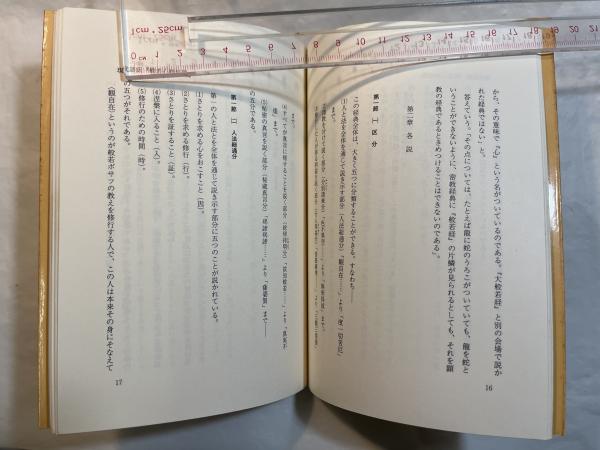 から、その意味で『心』という名がついているのである。『大般若経』と別の会場で説か
れた経典ではない」と。
答えていう。「その点については、たとえば龍に蛇のうろこがついていても、龍を蛇と
いうことができないように、密教経典に『般若経』の片鱗が見られるとしても、それを顕
教の経典であるときめつけることはできないのである」。
第二章 各説
第一節 (一) 区分
この経典全体は、大きく五つに分類することができる。すなわち——
(1)人と法とを全体を通じて説き示す部分(人法総通分)「観自在……」より「度一切苦厄」
16
まで。
の五分である。
第一節 (二) 人法総通分
第一の人と法とを全体を通じて説き示す部分に五つのことが説かれている。
(1)さとりを求める心をおこすこと(因)。
(2)さとりを求める修行(行)。
(3)さとりを証すること(証)。
(4)涅槃に入ること(入)。
(5)修行のための時間(時)。
の五つがそれである。
「観自在」というのが般若ボサツの教えを修行する人で、この人は本来その身にそなえて
17
1cm * 25cm
0 CM 1 2 3 4 5 6 7 8 9 10 11 12 13 14 15 16 17 18 19